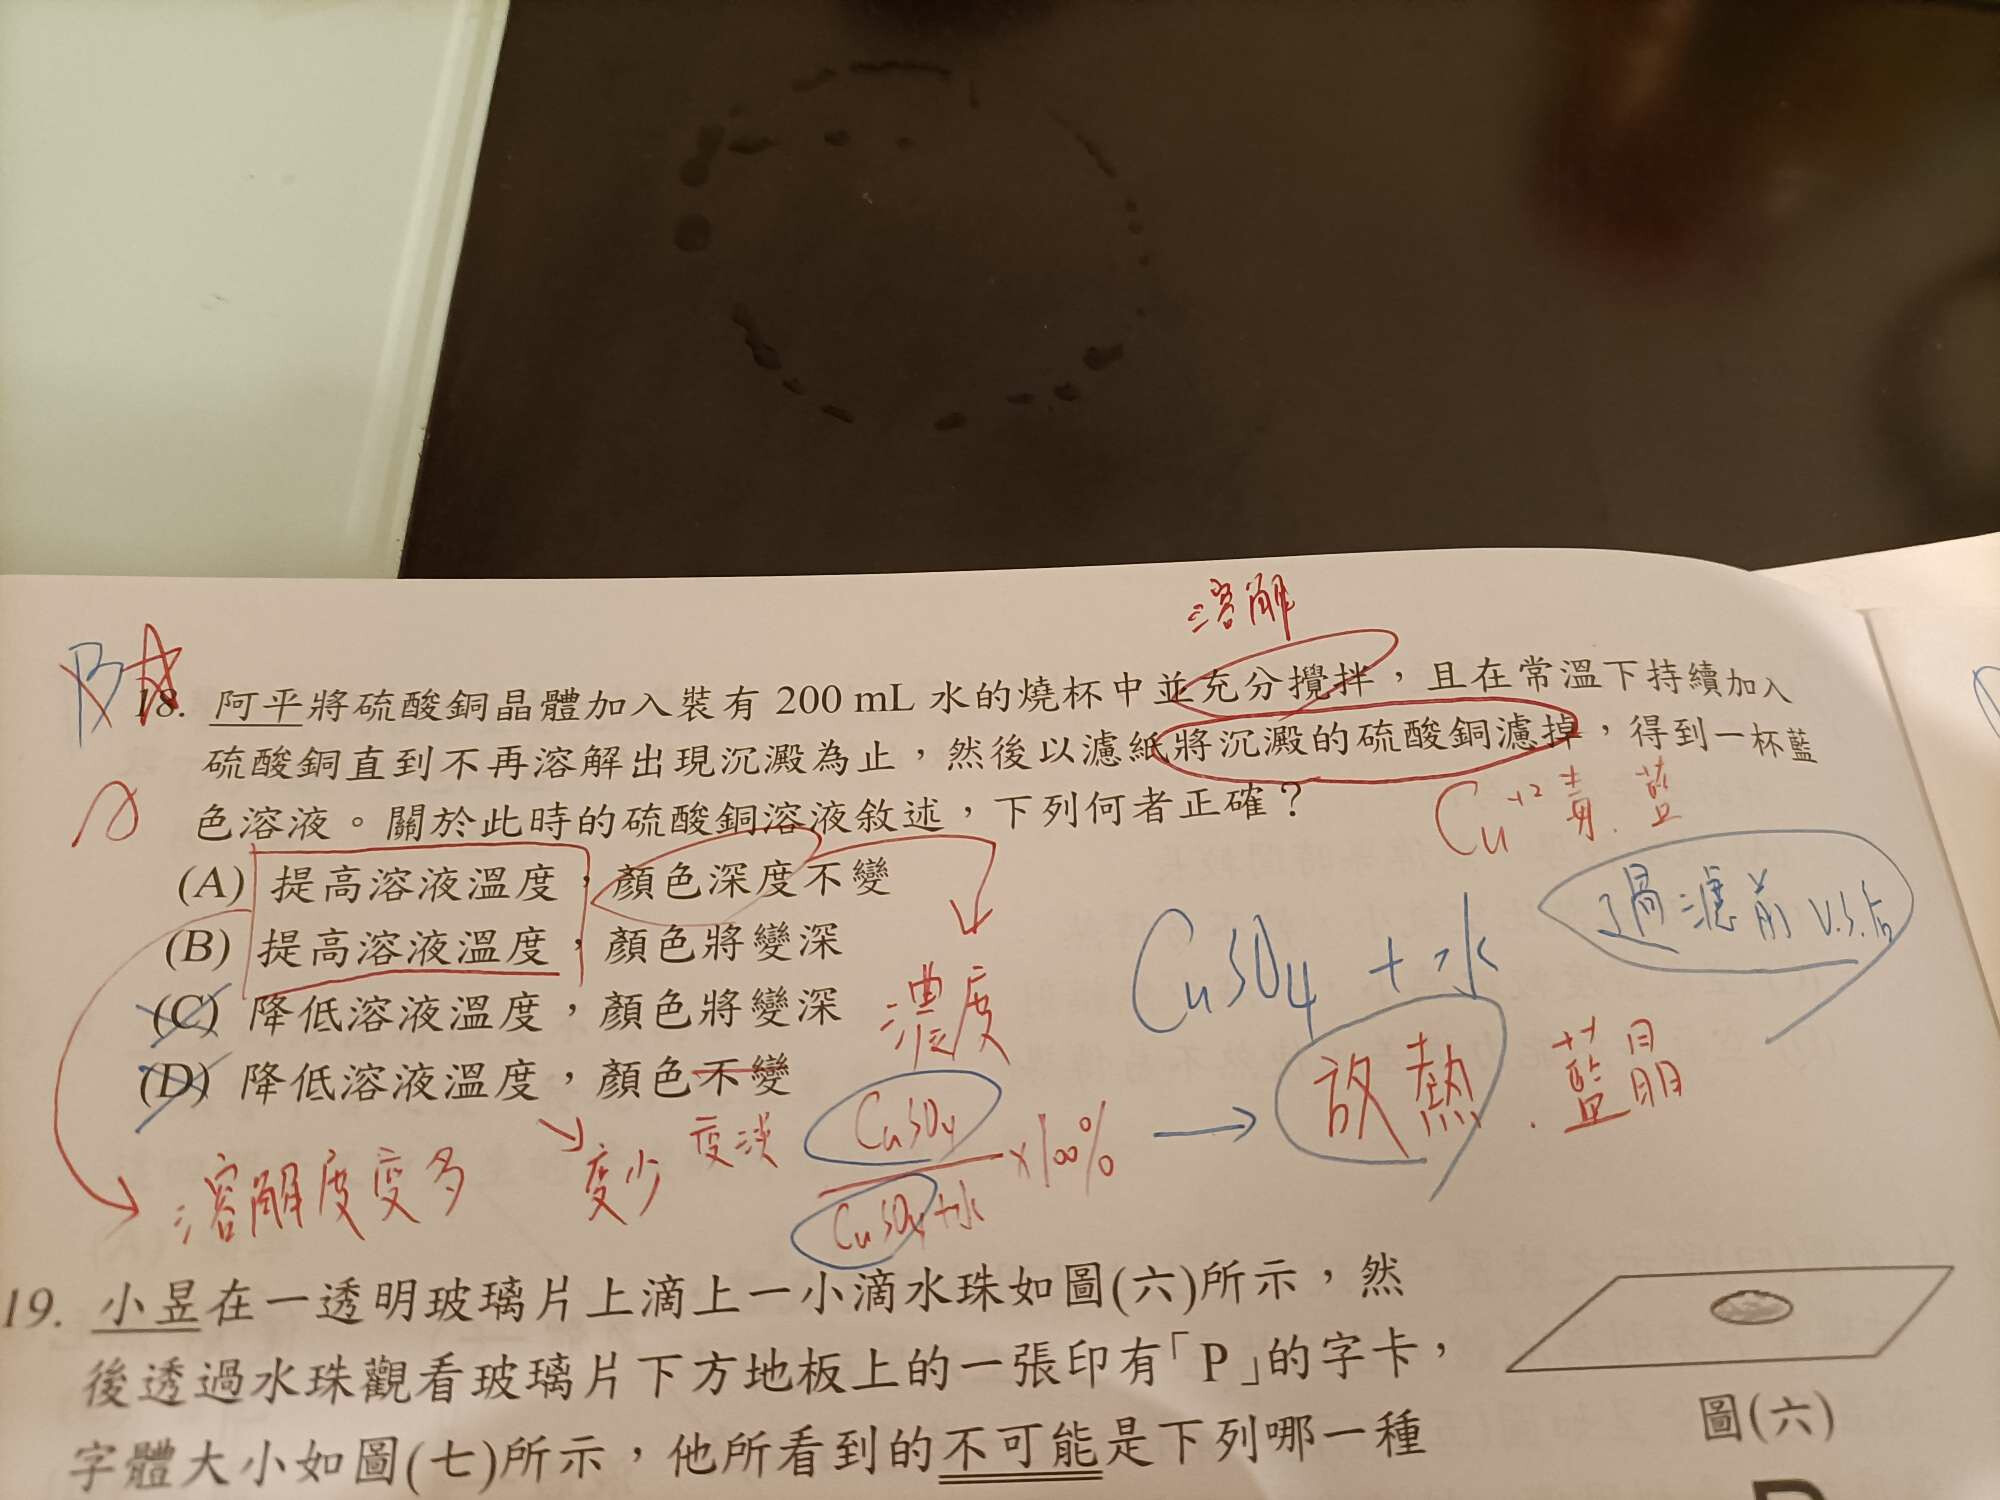 溶解
B A
18. 阿平將硫酸銅晶體加入裝有 200 mL 水的燒杯中並充分攪拌，且在常溫下持續加入
硫酸銅直到不再溶解出現沉澱為止，然後以濾紙將沉澱的硫酸銅濾掉，得到一杯藍
色溶液。關於此時的硫酸銅溶液敘述，下列何者正確？
Cu+2 青.藍
(A) 提高溶液溫度，顏色深度不變
(B) 提高溶液溫度，顏色將變深
(C) 降低溶液溫度，顏色將變深
(D) 降低溶液溫度，顏色不變
濃度
CuSO4 + 水
過濾前 v.s.后
放熱.藍晶
溶解度变多
变少
变淡
CuSO4
CuSO4+水
×100%
19. 小昱在一透明玻璃片上滴上一小滴水珠如圖(六)所示，然
後透過水珠觀看玻璃片下方地板上的一張印有「P」的字卡，
字體大小如圖(七)所示，他所看到的不可能是下列哪一種
圖(六)